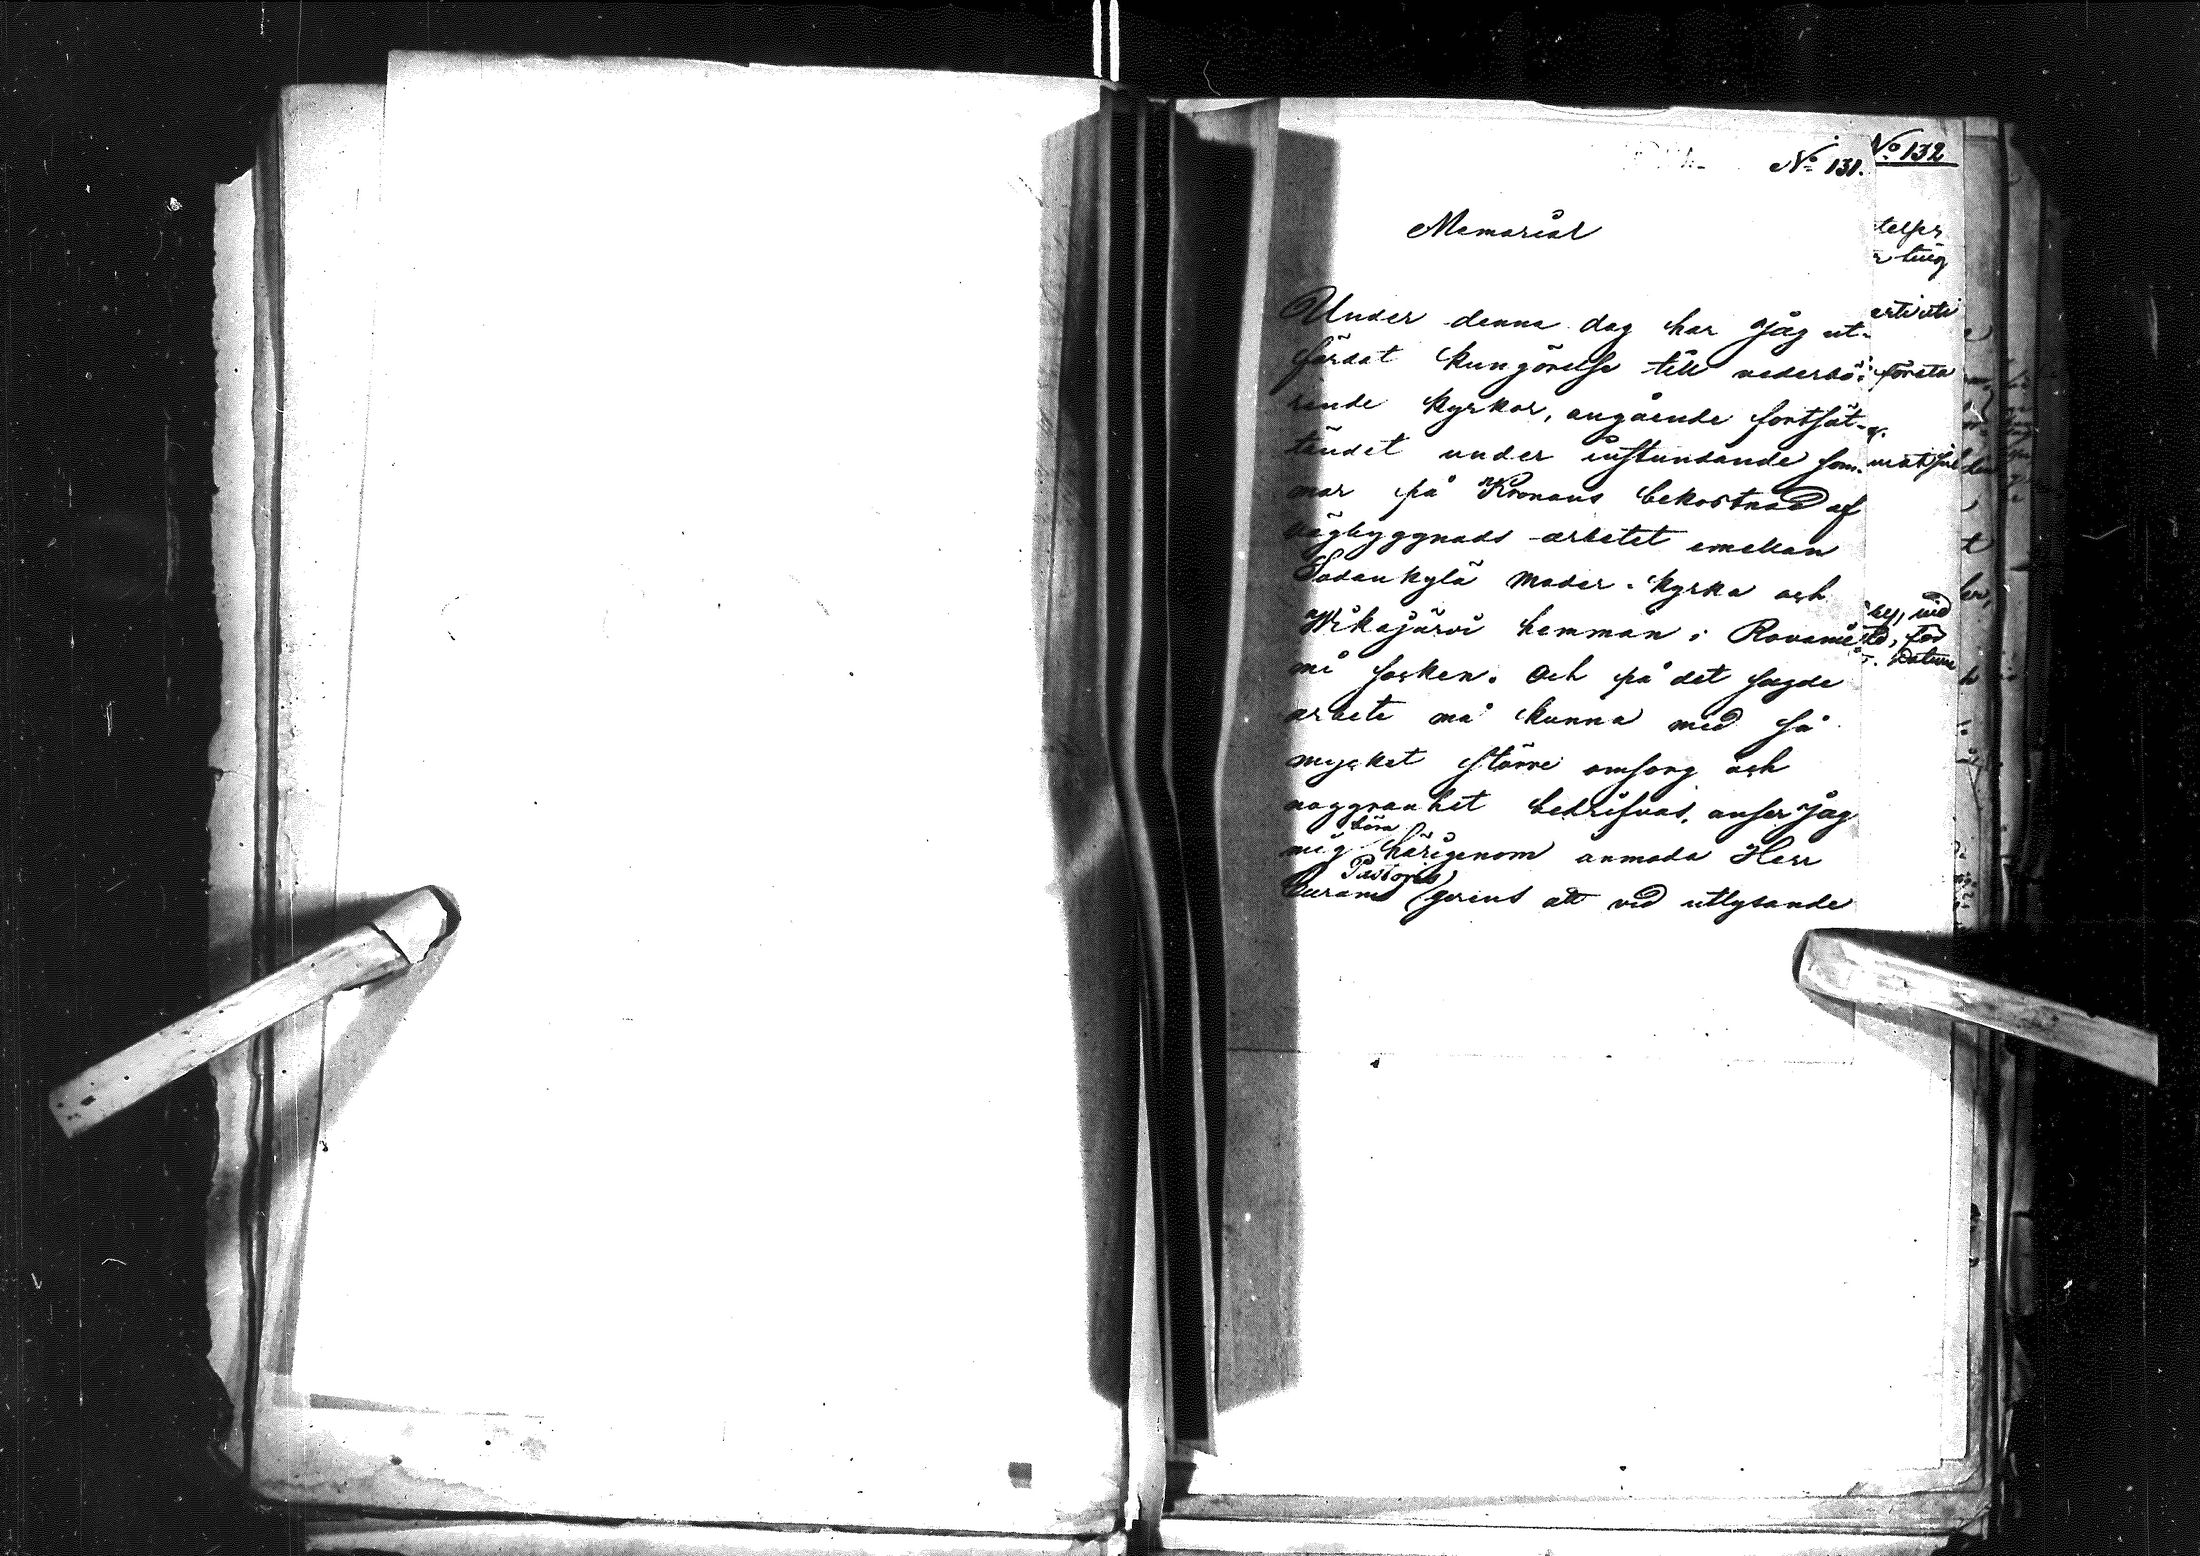 No 131.
No 132
Memorial
Under denna dag har jag ut-
färdat kungörelse till vederbö-
rende kyrkor, angående fortsät-
tandet under instundande som-
mar på Kronans bekostnad af
vägbyggnads arbetet emellan
Sodankylä moder-kyrka och
Wikajärvi hemman i Rovanie-
mi socken. Och på det sagde
arbete må kunna med så
mycket större omsorg och
noggranhet bedrifvas, anser jag
mig böra härigenom anmoda Herr
Curam Pastoris gerens att vid utlysande
första